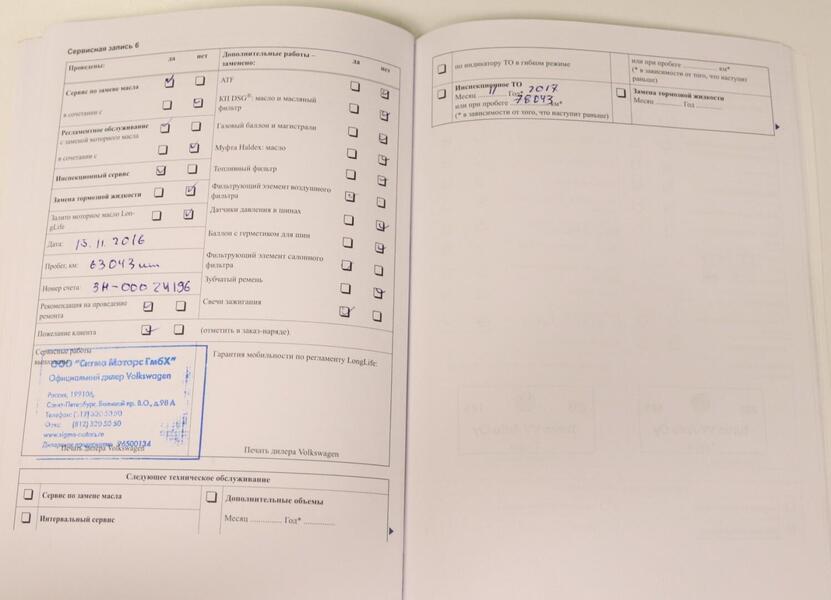 Сервисная запись 6
Проведены: да нет
Сервис по замене масла
в сочетании с
Регламентное обслуживание
с заменой моторного масла
в сочетании с
Инспекционный сервис
Замена тормозной жидкости
Залито моторное масло Lon-
gLife
Дата: 15.11.2016
Пробег, км: 63043 km
Номер счета: ЗН-000 24196
Рекомендация на проведение
ремонта
Пожелание клиента
(отметить в заказ-наряде).
Дополнительные работы –
заменено: да нет
ATF
КП DSG®: масло и масляный
фильтр
Газовый баллон и магистрали
Муфта Haldex: масло
Топливный фильтр
Фильтрующий элемент воздушного
фильтра
Датчики давления в шинах
Баллон с герметиком для шин
Фильтрующий элемент салонного
фильтра
Зубчатый ремень
Свечи зажигания
Сервисные работы
ООО "Сигма Моторс ГмбХ"
Официальный дилер Volkswagen
Россия, 199106,
Санкт-Петербург, Большой пр. В.О., д.98 А
Телефон: (812) 320 50 50
Факс: (812) 320 50 50
96500134
Печать дилера Volkswagen
Гарантия мобильности по регламенту LongLife:
Печать дилера Volkswagen
Следующее техническое обслуживание
Сервис по замене масла
Интервальный сервис
Дополнительные объемы
Месяц .............. Год* ..............
по индикатору ТО в гибком режиме
Инспекционное ТО
Месяц 11 Год* 2017
или при пробеге 78043 км*
(* в зависимости от того, что наступит раньше)
или при пробеге .............. км*
(* в зависимости от того, что наступит
раньше)
Замена тормозной жидкости
Месяц .............. Год ..............